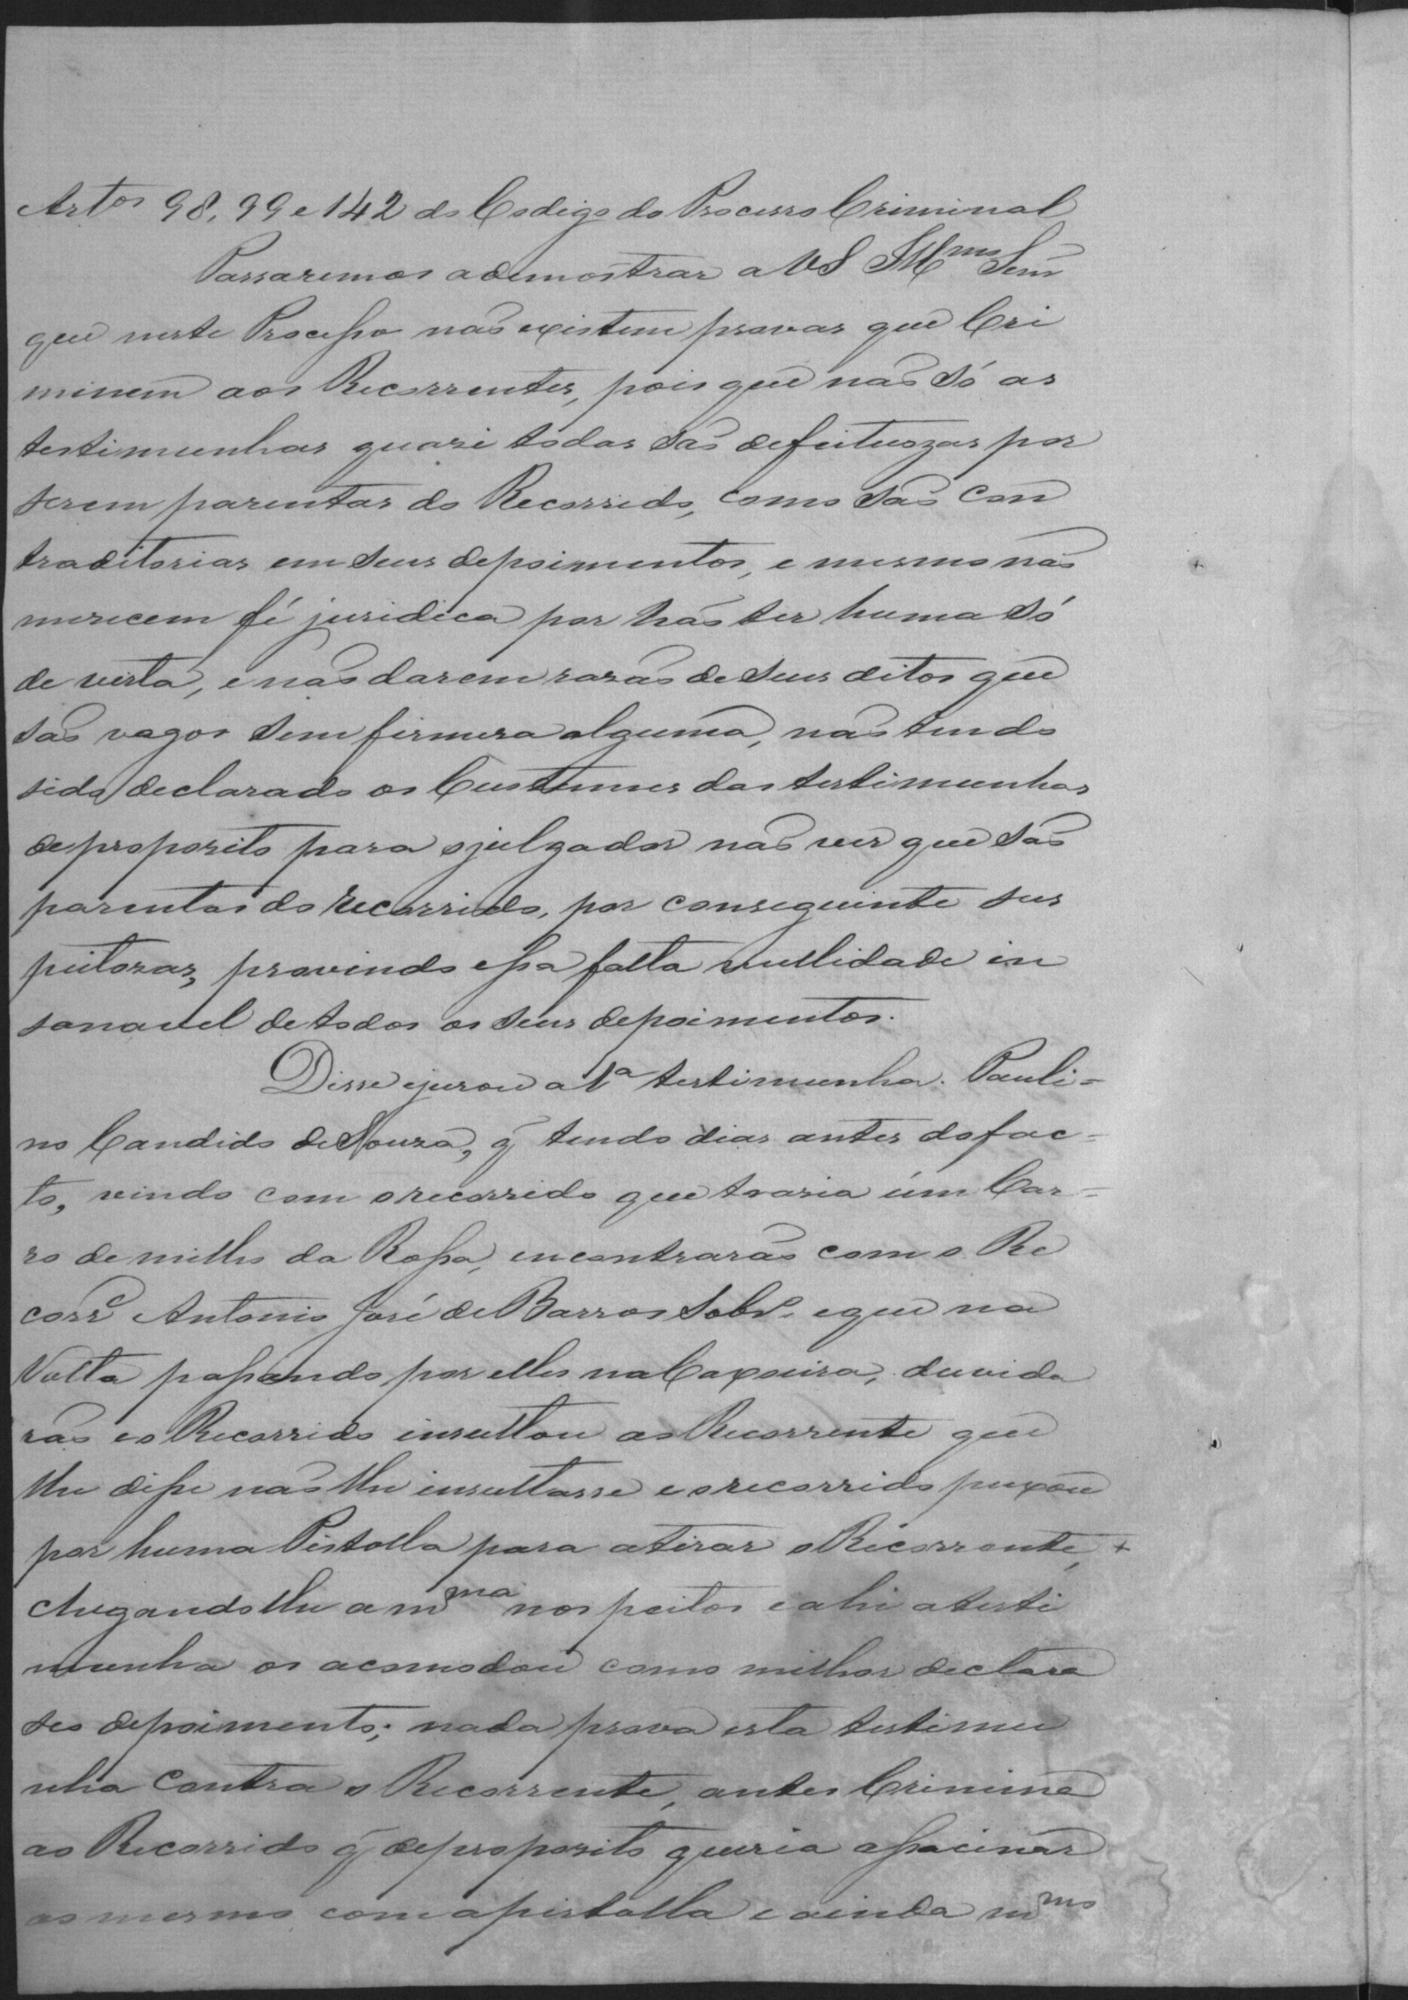 Artos 98, 99 e 142 do Codigo do Processo Criminal
Passaremos a demostrar a VS Illmo Senr
que neste Processo não existem provas que Cri
minem aos Recorrentes, pois que não só as
testimunhas quasi todas são defeituozas por
serem parentas do Recorrido, como são con
traditorias em seus depoimentos, e mesmo não
merecem fé juridica por não ter huma só
de vista, e não darem razão de seus ditos que
são vagos sem firmeza alguma, não tendo
sido declarado os Custumes das testimunhas
de proposito para o julgador não ver que são
parentas do recorrido, por conseguinte sus
peitozas, provindo essa falta nullidade in
sanavel de todos os seus depoimentos.
Disse e jurou a 1a testimunha. Pauli=
no Candido de Souza, q̃ tendo dias antes do fac=
to, vindo com o recorrido que trazia úm Car=
ro de milho da Rossa, encontrarão com o Re
corre Antonio José de Barros Sobro. e que na
Volta passando por elles na Capoeira, duvida
rão e o Recorrido insultou ao Recorrente que
lhe disse não lhe insultasse e o recorrido puxou
por huma Pistolla para atirar o Recorrente, +
chegando lhe a mma nos peitos e ahi a testi
munha os acomodou como milhor declara
seo depoimento; nada prova esta testimu
nha contra o Recorrente, antes Crimina
ao Recorrido q̃ de proposito queria assacinar
ao mesmo com a pistolla e ainda mmo